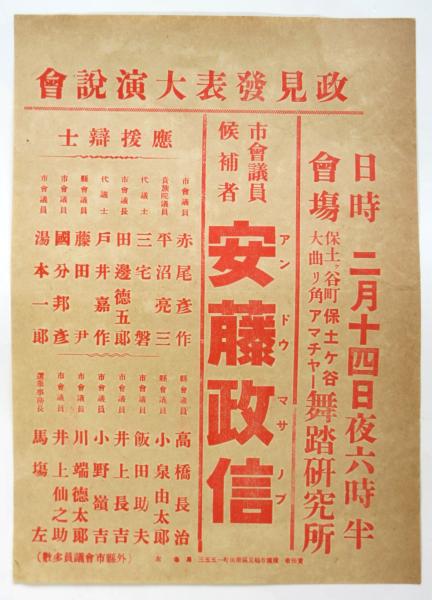 政見發表大演說會
日時 二月十四日夜六時半
會塲 保土ヶ谷町大曲リ角 保土ヶ谷アマチャー舞踏硏究所
市會議員候補者
安藤政信
アンドウマサノブ
應援辯士
市會議員 赤尾彥作
貴族院議員 平沼亮三
代議士 三宅磐
市會議長 田邊德五郞
代議士 戶井嘉作
縣會議員 藤田尹
市會議員 國分邦彥
市會議員 湯本一郞
縣會議員 高橋長治
縣會議員 小泉由太郞
市會議員 飯田助夫
市會議員 井上長吉
市會議員 小野嶺吉
市會議員 川端德太郞
市會議員 井上仙之助
選擧事務長 馬塲左
(外縣市會議員多數)